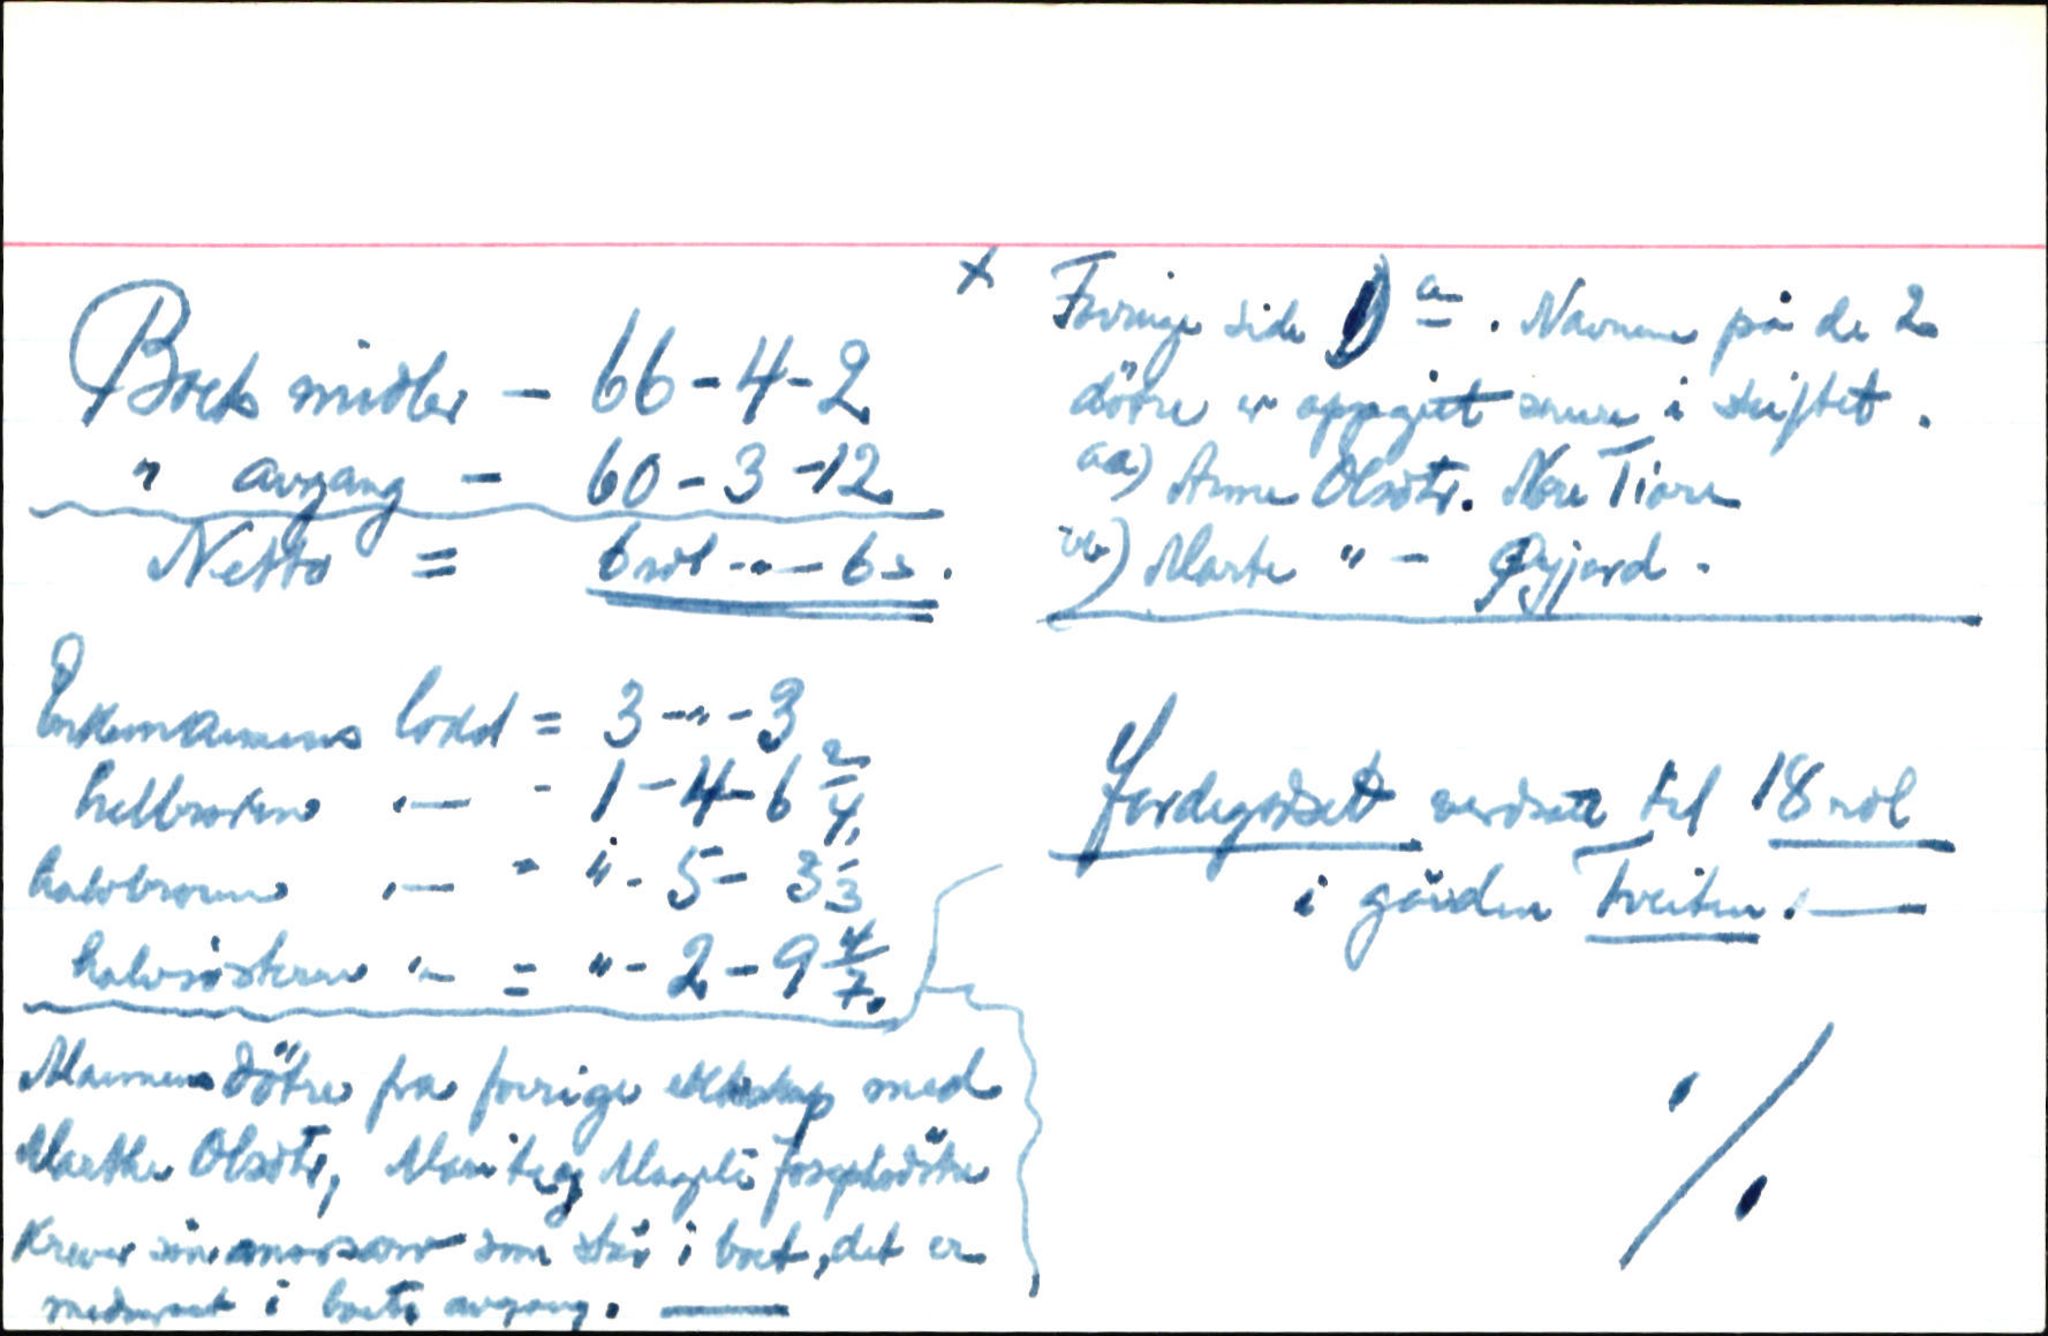 Boets midler - 66-4-2
" avgang - 60-3-12
Netto = 6 rdl - " - 6 s.
Enkemannens lodd = 3 - " - 3
helbroren " — - 1-4-6 2/4,
halvbroren " — " " - 5 - 3 1/3
halvsøsteren " — = " - 2 - 9 4/7.
Mannens dötre fra forrige ekteskap med
Marthe Olsdtr, Marit og Magli Josephsdötre
Krever sin morsarv som står i boet, det er
medregnet i boets avgang. —
x Forrige side 1) a. Navnene på de 2
dötre er oppgitt senere i skiftet.
aa) Anne Olsdtr. Nere Tiøre
bb) Marte " - Øyjord.
Jordegodset verdsatt til 18 rdl
i gården Tveiten. —
·/·